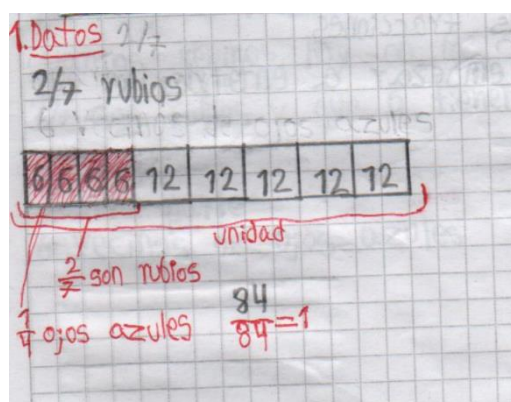 1. Datos 2/7
2/7 rubios
6 de ojos azules
6 6 6 6 12 12 12 12 12
unidad
2/7 son rubios
1/4 ojos azules 84/84 = 1